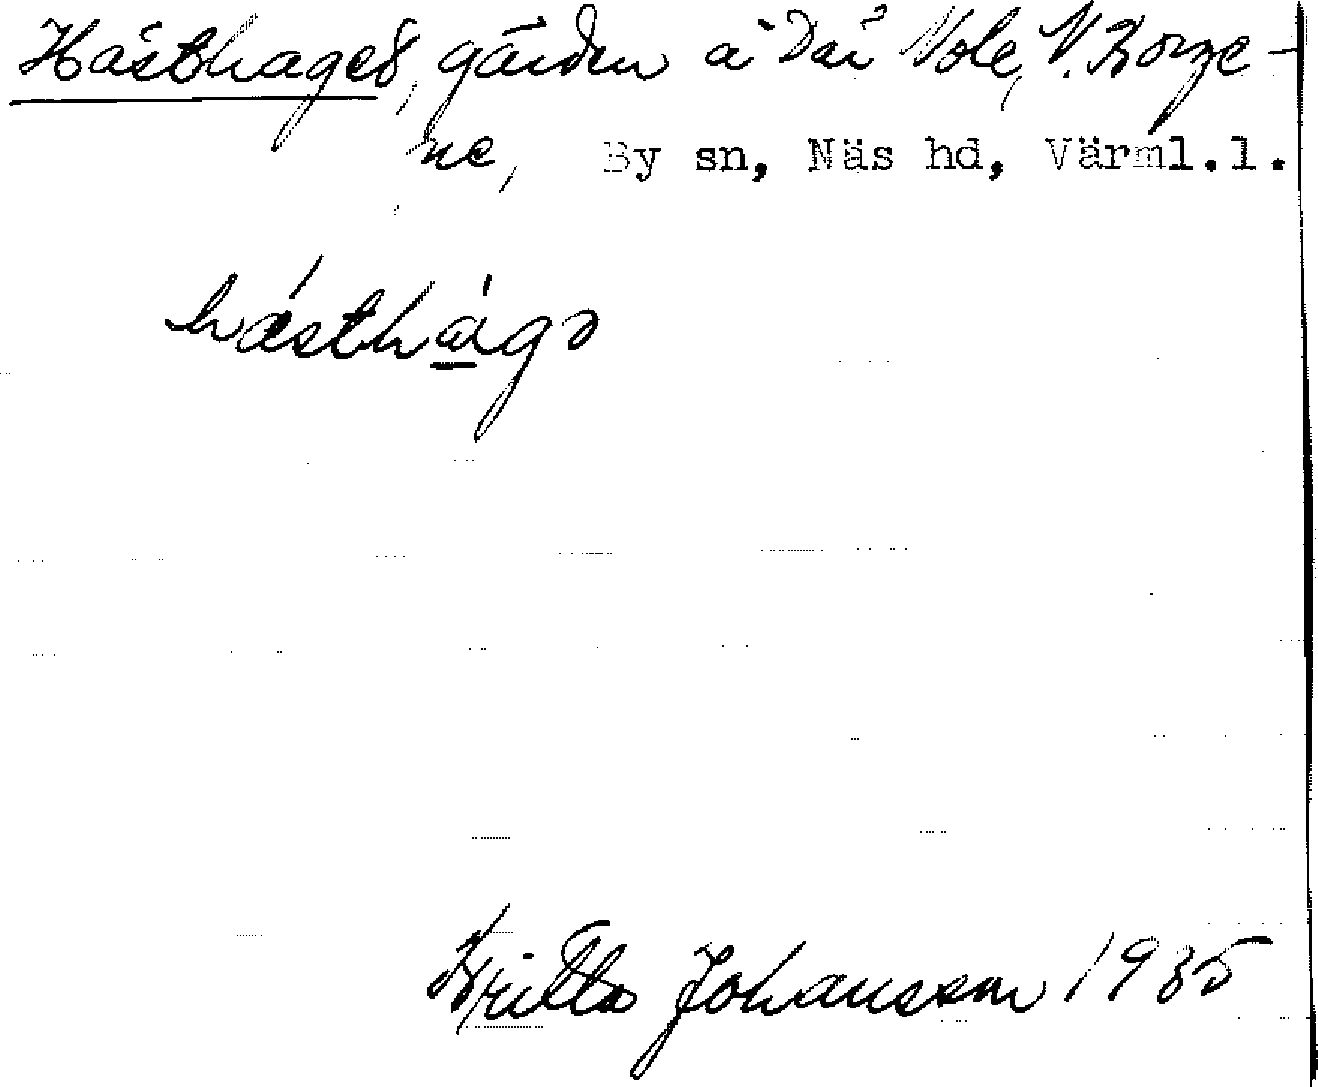 Hästhaged, gärden å Där Nole, V. Borge-
ne, By sn, Näs hd, Värml.l.
hästhago
Britta Johansson 1935